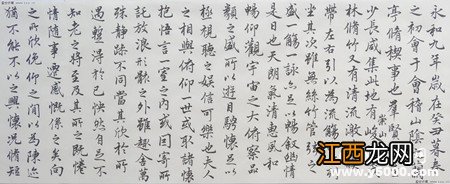 永和九年歲在癸丑暮春
之初會于會稽山陰
亭脩稧事也羣賢
少長咸集此地有
崇山
林脩竹又有清流激
帶左右引以為流觴
坐其次雖無絲竹管弦之
盛一觴一詠亦足以暢敘幽情
是日也天朗氣清惠風和
暢仰觀宇宙之大俯察品
類之盛所以遊目騁懷足以
極視聽之娛信可樂也夫人
之相與俯仰一世或取諸懷
抱悟言一室之內或因寄所
託放浪形骸之外雖趣舍萬
殊靜躁不同當其欣於所
遇蹔得於己怏然自足不
知老之將至及其所之既倦
情隨事遷感慨係之矣向
之所欣俛仰之間以為陳迹
猶不能不以之興懷況脩短
江西龙网